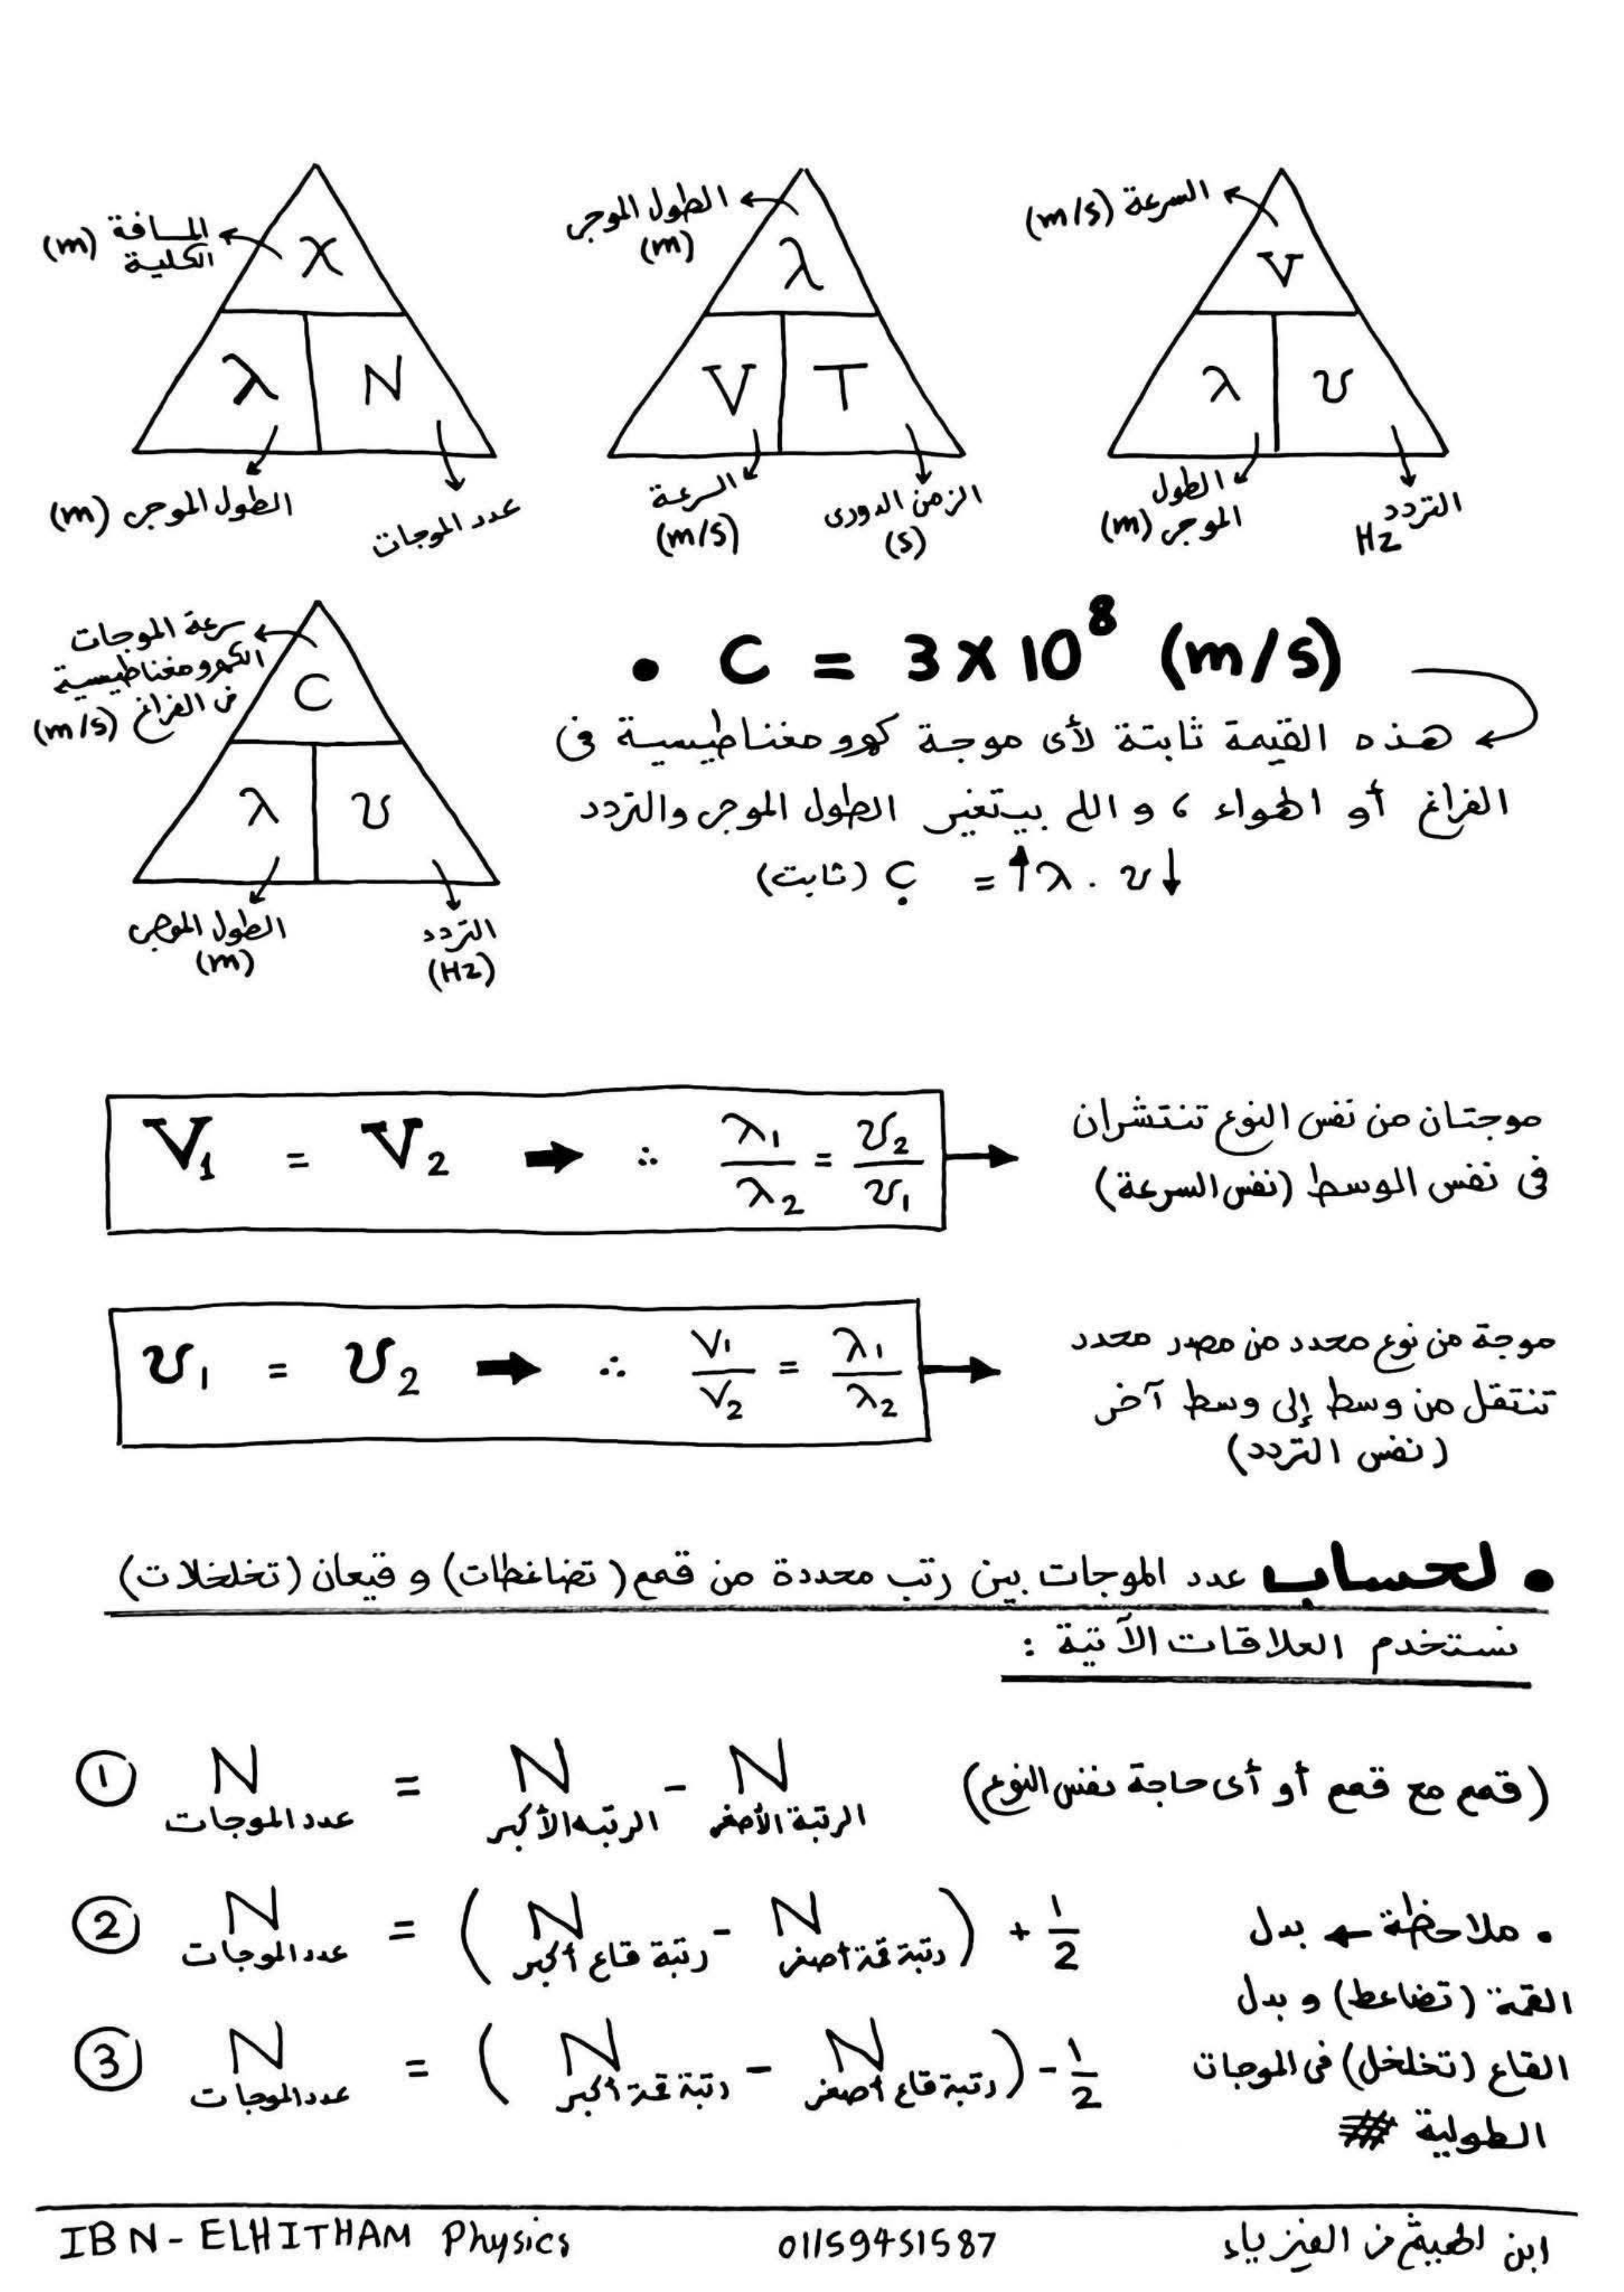 المسافة
الكلية (m)
X
λ
N
الطول الموجى (m)
عدد الموجات
الطول الموجى
(m)
λ
V
T
السرعة
(m/s)
الزمن الدورى
(s)
السرعة (m/s)
V
λ
υ
الطول
الموجى (m)
التردد
Hz
سرعة الموجات
الكهرومغناطيسية
فى الفراغ (m/s)
C
λ
υ
الطول الموجى
(m)
التردد
(Hz)
• C = 3 X 10⁸ (m/s)
هذه القيمة ثابتة لأى موجة كهرومغناطيسية فى
الفراغ أو الهواء ، و اللى بيتغير الطول الموجى والتردد
(ثابت) C = ↑λ . υ↓
V₁ = V₂ ➡ ∴ λ₁/λ₂ = υ₂/υ₁ →
موجتان من نفس النوع تنتشران
فى نفس الوسط (نفس السرعة)
υ₁ = υ₂ ➡ ∴ V₁/V₂ = λ₁/λ₂ →
موجة من نوع محدد من مصدر محدد
تنتقل من وسط إلى وسط آخر
(نفس التردد)
• لحساب عدد الموجات بين رتب محددة من قمم (تضاغطات) و قيعان (تخلخلات)
نستخدم العلاقات الآتية :
① N = N - N (قمم مع قمم أو أى حاجة نفس النوع)
عدد الموجات الرتبه الأكبر الرتبة الأصغر
② N = ( N - N ) + 1/2
عدد الموجات رتبة قاع أكبر رتبة قمة أصغر
③ N = ( N - N ) - 1/2
عدد الموجات رتبة قمة أكبر رتبة قاع أصغر
• ملاحظة ← بدل
القمة (تضاعط) و بدل
القاع (تخلخل) فى الموجات
الطولية
IBN-ELHITHAM Physics 01159451587 ابن الهيثم فى الفيزياء